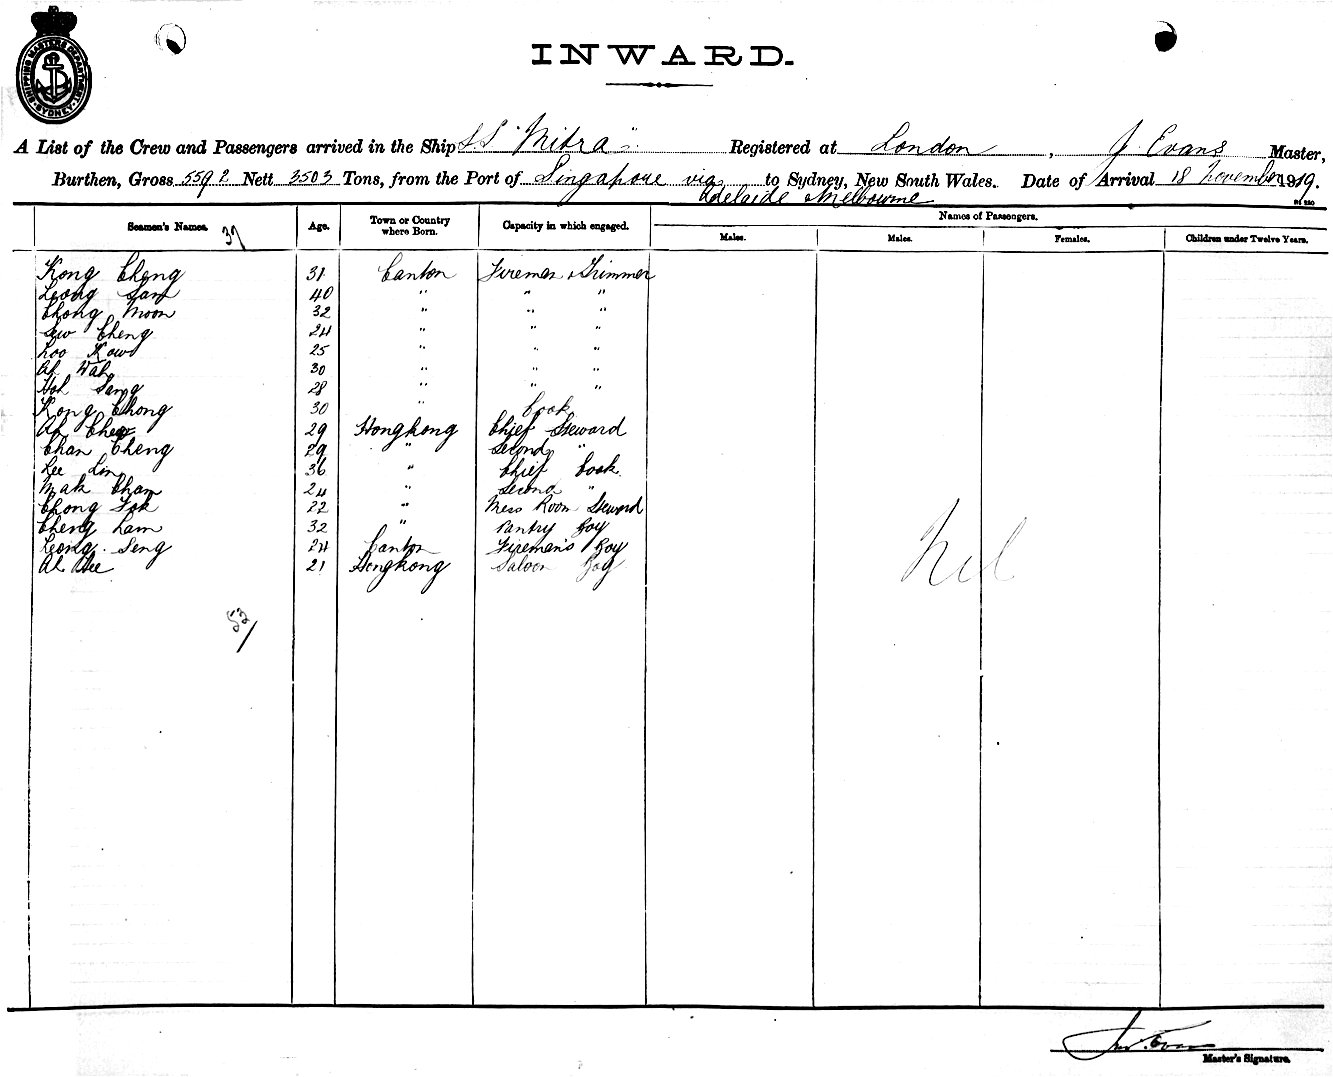 SHIPPING MASTER'S DEPARTMENT SYDNEY
INWARD.
A List of the Crew and Passengers arrived in the Ship S.S. "Mitra" Registered at London, J. Evans Master,
Burthen, Gross 5592 Nett 3503 Tons, from the Port of Singapore via to Sydney, New South Wales. Date of Arrival 18 November 1919.
Adelaide & Melbourne
Seamen's Names. 37 Age. Town or Country where Born. Capacity in which engaged. Names of Passengers.
Males. Males. Females. Children under Twelve Years.
Kong Cheng 31 Canton Fireman & Trimmer
Leong Sam 40 " " "
Chong Moon 32 " " "
Sew Cheng 24 " " "
Loo Kow 25 " " "
Ah Wah 30 " " "
Hoh Sang 28 " " "
Kong Chong 30 " Cook
Ah Chew 29 Hongkong Chief Steward
Chan Cheng 29 " Second "
Lee Lin 36 " Chief Cook
Mak Chan 24 " Second "
Chong Fok 22 " Mess Room Steward
Cheng Lam 32 " Pantry Boy
Leong Seng 24 Canton Fireman's Boy
Ah 21 Hongkong Saloon Boy
Nil
53/
Jno. Evans
Master's Signature.